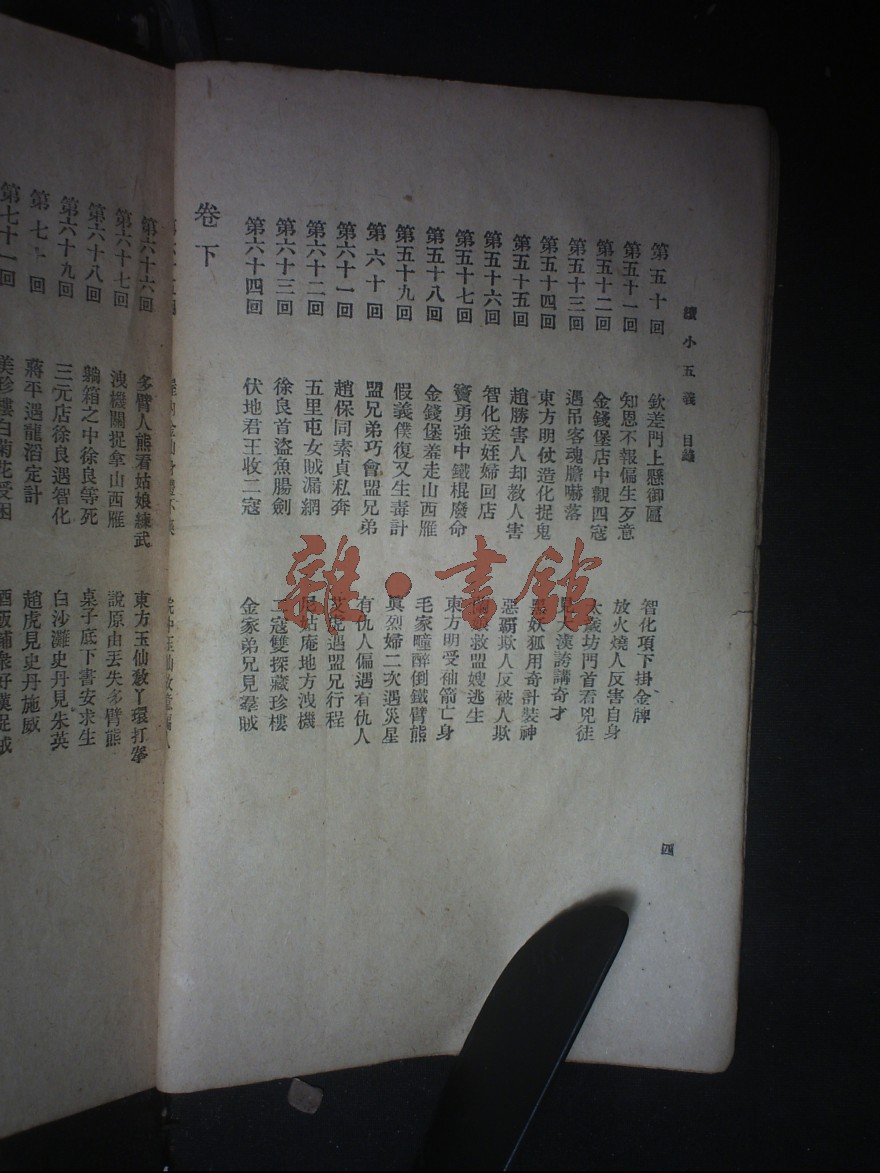 續小五義 目錄
四
第五十回 欽差門上懸御匾 智化項下掛金牌
第五十一回 知恩不報偏生歹意 放火燒人反害自身
第五十二回 金錢堡店中觀四寇 太歲坊門首看兇徒
第五十三回 遇吊客魂膽嚇落 大漢誇講奇才
第五十四回 東方明仗造化捉鬼 妖狐用奇計裝神
第五十五回 趙勝害人却教人害 惡霸欺人反被人欺
第五十六回 智化送姪婦回店 救盟嫂逃生
第五十七回 竇勇強中鐵棍廢命 東方明受袖箭亡身
第五十八回 金錢堡羞走山西雁 毛家疃醉倒鐵臂熊
第五十九回 假義僕復又生毒計 眞烈婦二次遇災星
第六十回 盟兄弟巧會盟兄弟 有仇人偏遇有仇人
第六十一回 趙保同素貞私奔 艾虎遇盟兄行程
第六十二回 五里屯女賊漏網 尼姑庵地方洩機
第六十三回 徐良首盜魚腸劍 二寇雙探藏珍樓
第六十四回 伏地君王收二寇 金家弟兄見羣賊
卷下
第六十六回 多臂人熊看姑娘練武 東方玉仙教丫環打拳
第六十七回 洩機關捉拿山西雁 說原由丟失多臂熊
第六十八回 躺箱之中徐良等死 桌子底下書安求生
第六十九回 三元店徐良遇智化 白沙灘史丹見朱英
第七十回 蔣平遇龍滔定計 趙虎見史丹施威
第七十一回 美珍樓白菊花受困 酒飯鋪衆好漢捉賊
雜·書館